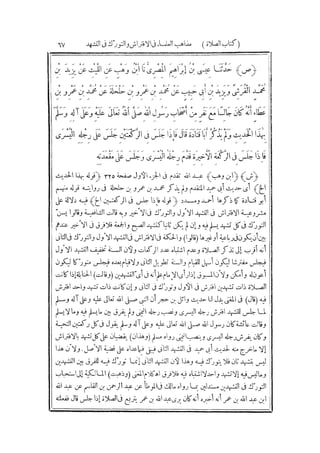 ﴿ كتاب الصلاة ﴾ مذاهب العلماء فى الافتراش والتورك فى التشهد ٦٧
﴿ص﴾ حَدَّثَنَا عِيسَى بْنُ إِبْرَاهِيمَ الْمِصْرِىُّ نَا ابْنُ وَهْبٍ عَنِ اللَّيْثِ عَنْ يَزِيدَ بْنِ
مُحَمَّدٍ الْقُرَشِىِّ وَيَزِيدَ بْنِ أَبِى حَبِيبٍ عَنْ مُحَمَّدِ بْنِ عَمْرِو بْنِ حَلْحَلَةَ عَنْ مُحَمَّدِ بْنِ عَمْرِو بْنِ
عَطَاءٍ أَنَّهُ كَانَ جَالِسًا مَعَ نَفَرٍ مِنْ أَصْحَابِ رَسُولِ اللهِ صَلَّى اللهُ تَعَالَى عَلَيْهِ وَعَلَى آلِهِ وَسَلَّمَ
بِهٰذَا الْحَدِيثِ وَلَمْ يَذْكُرْ أَبَا قَتَادَةَ قَالَ فَإِذَا جَلَسَ فِى الرَّكْعَتَيْنِ جَلَسَ عَلَى رِجْلِهِ الْيُسْرَى
فَإِذَا جَلَسَ فِى الرَّكْعَةِ الْأَخِيرَةِ قَدَّمَ رِجْلَهُ الْيُسْرَى وَجَلَسَ عَلَى مَقْعَدَتِهِ
﴿ش﴾ ﴿ابن وهب﴾ عبد الله تقدم فى الجزء الأول صفحة ٣٢٥ ﴿قوله بهذا الحديث
الخ﴾ أى حديث أبى حميد المتقدم ولم يذكر محمد بن عمرو بن حلحلة فى روايته قوله منهم
أبو قتادة كما ذكرها أحمد ومسدد ﴿قوله فإذا جلس فى الركعتين الخ﴾ فيه دلالة على
مشروعية الافتراش فى التشهد الأول والتورك فى الأخير وبه قالت الشافعية وقالوا يسن
التورك فى كل تشهد يسلم فيه وإن لم يكن ثانيا كتشهد الصبح والجمعة فلا فرق فى الأخير عندهم
بين أن يكون فى رباعية أو غيرها (قالوا) والحكمة فى الافتراش فى التشهد الأول والتورك فى الثانى
أنه أقرب إلى تذكر الصلاة وعدم اشتباه عدد الركعات ولأن السنة تخفيف التشهد الأول
فيجلس مفترشا ليكون أسهل للقيام والسنة تطويل الثانى ولا قيام بعده فيجلس متوركا ليكون
أعون له وأمكن ولأن المسبوق إذا رأى الإمام علم أنه فى أى التشهدين (وقالت) الحنابلة إذا كانت
الصلاة ذات تشهدين افترش فى الأول وتورك فى الثانى وإن كانت ذات تشهد واحد افترش
فيه (قال) فى المغنى يدل لنا حديث وائل بن حجر أن النبى صلى الله تعالى عليه وعلى آله وسلم
لما جلس للتشهد افترش رجله اليسرى ونصب رجله اليمنى ولم يفرق بين ما يسلم فيه وما لا يسلم
وقالت عائشة كان رسول الله صلى الله تعالى عليه وعلى آله وسلم يقول فى كل ركعتين التحية
وكان يفرش رجله اليسرى وينصب اليمنى رواه مسلم (وهذان) يقضيان على كل تشهد بالافتراش
إلا ما خرج منه لحديث أبى حميد فى التشهد الثانى فيبقى فيما عداه على قضية الأصل ولأن هذا
ليس بتشهد ثان فلا يتورك فيه وهذا لأن التشهد الثانى إنما تورك فيه للفرق بين التشهدين
وما ليس فيه إلا تشهد واحد لا اشتباه فيه فلا فرق اهـ كلام المغنى (وذهبت) المالكية إلى استحباب
التورك فى التشهدين مستدلين بما رواه مالك فى الموطأ عن عبد الرحمن بن القاسم عن عبد الله
ابن عبد الله بن عمر أنه أخبره أنه كان يرى عبد الله بن عمر يتربع فى الصلاة إذا جلس قال ففعلته